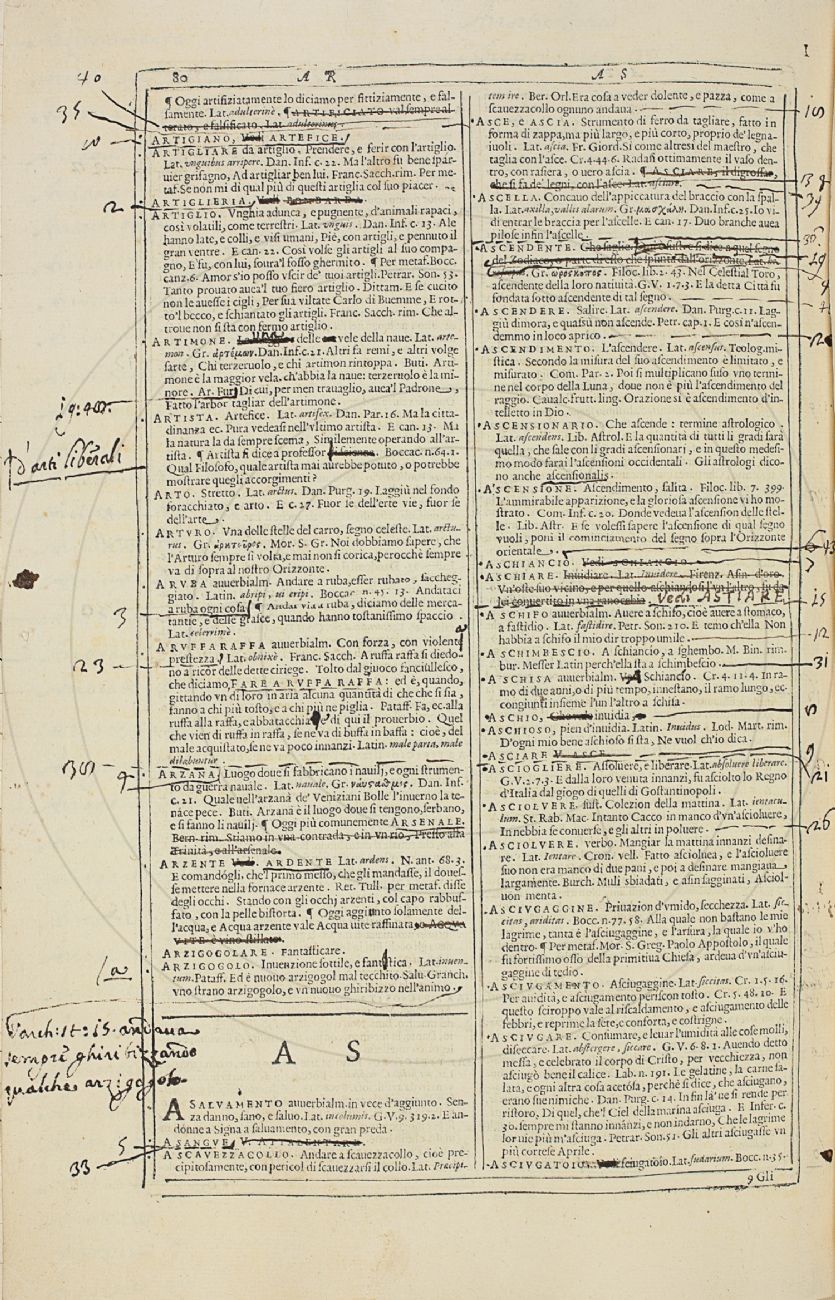 I
80 A R A S
¶ Oggi artifiziatamente lo diciamo per fittiziamente, e fal-
samente. Lat. adulterinè. ¶ ARTIFICIATO val sempre al-
terato, e falsificato. Lat. adulterinus.
ARTIGIANO, Vedi ARTEFICE.
ARTIGLIARE da artiglio. Prendere, e ferir con l'artiglio.
Lat. vnguibus arripere. Dan. Inf. c. 22. Ma l'altro fu bene spar-
uier grifagno, Ad artigliar ben lui. Franc. Sacch. rim. Per me-
taf. Se non mi di qual più di questi artiglia col suo piacer.
ARTIGLIERIA, Vedi BOMBARDA.
ARTIGLIO. Vnghia adunca, e pugnente, d'animali rapaci,
così volatili, come terrestri. Lat. vnguis. Dan. Inf. c. 13. Ale
hanno late, e colli, e visi vmani, Piè, con artigli, e pennuto il
gran ventre. E can. 22. Così volse gli artigli al suo compa-
gno, E fu, con lui, soura'l fosso ghermito. ¶ Per metaf. Bocc.
canz. 6. Amor s'io posso vscir de' tuoi artigli. Petrar. Son. 53.
Tanto prouato auea'l tuo fiero artiglio. Dittam. E se cucito
non le auesse i cigli, Per sua viltate Carlo di Buemme, E rot-
to'l becco, e schiantato gli artigli. Franc. Sacch. rim. Che al-
troue non si stà con fermo artiglio.
ARTIMONE. delle vele della naue. Lat. arte-
mon. Gr. ἀρτέμων. Dan. Inf. c. 21. Altri fa remi, e altri volge
sarte, Chi terzeruolo, e chi artimon rintoppa. Buti. Arti-
mone è la maggior vela, ch'abbia la naue: terzeruolo è la mi-
nore. Ar. Fur. Di cui, per men trauaglio, auea'l Padrone,
Fatto l'arbor tagliar dell'artimone.
ARTISTA. Artefice. Lat. artifex. Dan. Par. 16. Ma la citta-
dinanza ec. Pura vedeasi nell'vltimo artista. E can. 13. Ma
la natura la da sempre scema, Similemente operando all'ar-
tista. ¶ Artista si dice a professor Boccac. n. 64. 1.
Qual Filosofo, quale artista mai aurebbe potuto, o potrebbe
mostrare quegli accorgimenti?
ARTO. Stretto. Lat. arctus. Dan. Purg. 19. Laggiù nel fondo
foracchiato, e arto. E c. 27. Fuor se' dell'erte vie, fuor se'
dell'arte.
ARTVRO. Vna delle stelle del carro, segno celeste. Lat. arctu-
rus. Gr. ἀρκτοῦρος. Mor. S. Gr. Noi dobbiamo sapere, che
l'Arturo sempre si volta, e mai non si corica, perocchè sempre
va di sopra al nostro Orizzonte.
ARVBA auuerbialm. Andare a ruba, esser rubato, saccheg-
giato. Latin. abripi, vi eripi. Boccac. n. 45. 13. Andataci
a ruba ogni cosa. ¶ Andar via a ruba, diciamo delle merca-
tantie, e delle grasce, quando hanno tostanissimo spaccio.
Lat. celerrimè.
ARVFFARAFFA auuerbialm. Con forza, e con violenta
prestezza. Lat. obnixè. Franc. Sacch. A ruffa raffa si diedo-
no a ricor delle dette ciriege. Tolto dal giuoco fanciullesco,
che diciamo, FARE A RVFFA RAFFA: ed è, quando,
gittando vn di loro in aria alcuna quantità di che che si sia,
fanno a chi più tosto, e a chi più ne piglia. Pataff. Fa, ec. alla
ruffa alla raffa, e abbatacchia e di qui il prouerbio. Quel
che vien di ruffa in raffa, se ne va di buffa in baffa: cioè, del
male acquistato, se ne va poco innanzi. Latin. male parta, male
dilabuntur.
ARZANA, Luogo doue si fabbricano i nauilj, e ogni strumen-
to da guerra nauale. Lat. nauale. Gr. ναύσταθμος. Dan. Inf.
c. 21. Quale nell'arzanà de' Veniziani Bolle l'inuerno la te-
nace pece. Buti. Arzanà è il luogo doue si tengono, serbano,
e si fanno li nauilj. ¶ Oggi più comunemente ARSENALE.
Bern. rim. Stiamo in vna contrada, e in vn rio, Presso alla
Trinità, e all'arsenale.
ARZENTE Vedi. ARDENTE Lat. ardens. N. ant. 68. 3.
E comandogli, che'l primo messo, che gli mandasse, il doues-
se mettere nella fornace arzente. Ret. Tull. per metaf. disse
degli occhi. Stando con gli occhj arzenti, col capo rabbuf-
fato, con la pelle bistorta. ¶ Oggi aggiunto solamente del-
l'acqua, e Acqua arzente vale Acqua uite raffinata, o ACQVA
VITE è vino stillato.
ARZIGOGOLARE. Fantasticare.
ARZIGOGOLO. Inuenzione sottile, e fantastica. Lat. inuen-
tum. Pataff. Ed è nuouo arzigogol mal tecchito. Salu. Granch.
vno strano arzigogolo, e vn nuouo ghiribizzo nell'animo.
A S
A SALVAMENTO auuerbialm. in vece d'aggiunto. Sen-
za danno, sano, e saluo. Lat. incolumis. G. V. 9. 319. 2. E an-
donne a Signa a saluamento, con gran preda.
A SANGVE,
A SCAVEZZACOLLO. Andare a scauezzacollo, cioè pre-
cipitosamente, con pericol di scauezzarsi il collo. Lat. Præcipi-
tem ire. Ber. Orl. Era cosa a veder dolente, e pazza, come a
scauezzacollo ognuno andaua.
ASCE, e ASCIA. Strumento di ferro da tagliare, fatto in
forma di zappa, ma più largo, e più corto, proprio de' legna-
iuoli. Lat. ascia. Fr. Giord. Si come altresì del maestro, che
taglia con l'asce. Cr. 4. 44. 6. Radasi ottimamente il vaso den-
tro, con rasiera, o uero ascia. ¶ ASCIARE, il digrossar,
che si fa de' legni, con l'asce Lat. asciare.
ASCELLA. Concauo dell'appiccatura del braccio con la spal-
la. Lat. axilla, vallis alarum. Gr. μασχάλη. Dan. Inf. c. 25. Io vi-
di entrar le braccia per l'ascelle. E can. 17. Duo branche auea
pilose infin l'ascelle.
ASCENDENTE. Che saglie. Dall'Astro si dice a quel segno
del Zodiaco, o parte di esso che spunta dall'orizzonte.
Gr. ὡροσκόπος. Filoc. lib. 2. 43. Nel Celestial Toro,
ascendente della loro natiuità. G. V. 1. 7. 3. E la detta Città fu
fondata sotto ascendente di tal segno.
ASCENDERE. Salire. Lat. ascendere. Dan. Purg. c. 11. Lag-
giù dimora, e quassù non ascende. Petr. cap. 1. E così n'ascen-
demmo in loco aprico.
ASCENDIMENTO. L'ascendere. Lat. ascensus. Teolog. mi-
stica. Secondo la misura del suo ascendimento è limitato, e
misurato. Com. Par. 2. Poi si multiplicano suso vno termi-
ne nel corpo della Luna, doue non è più l'ascendimento del
raggio. Caualc. frutt. ling. Orazione si è ascendimento d'in-
telletto in Dio.
ASCENSIONARIO. Che ascende: termine astrologico.
Lat. ascendens. Lib. Astrol. E la quantità di tutti li gradi sarà
quella, che sale con li gradi ascensionarj, e in questo medesi-
mo modo farai l'ascensioni occidentali. Gli astrologi dico-
no anche ascensionali.
ASCENSIONE. Ascendimento, salita. Filoc. lib. 7. 399.
L'ammirabile apparizione, e la gloriosa ascensione vi ho mo-
strato. Com. Inf. c. 20. Donde vedeua l'ascension delle stel-
le. Lib. Astr. E se volessi sapere l'ascensione di qual segno
vuoli, poni il cominciamento del segno sopra l'Orizzonte
orientale.
A SCHIANCIO. Vedi SCHIANCIO.
ASCHIARE. Inuidiare. Lat. Inuidere. Firenz. Asin. d'oro.
Vn'oste suo vicino, e per quello aschiandosi l'vn l'altro, fu da
lei conuertito in vna ranocchia. Vedi ASTIARE
A SCHIFO auuerbialm. Auere a schifo, cioè auere a stomaco,
a fastidio. Lat. fastidire. Petr. Son. 210. E temo ch'ella Non
habbia a schifo il mio dir troppo umile.
A SCHIMBESCIO. A schiancio, a sghembo. M. Bin. rim-
bur. Messer Latin perch'ella sta a schimbescio.
A SCHISA auuerbialm. Schiancio. Cr. 4. 11. 4. In ra-
mo di due anni, o di più tempo, innestano, il ramo lungo, ec.
congiunti insieme l'un l'altro a schisa.
ASCHIO, inuidia,
ASCHIOSO, pien d'inuidia. Latin. Inuidus. Lod. Mart. rim.
D'ogni mio bene aschioso si sta, Ne vuol ch'io dica.
ASCIARE V. ASCE.
ASCIOGLIERE. Assoluere, e liberare. Lat. absoluere liberare.
G. V. 2. 7. 3. E dalla loro venuta innanzi, fu asciolto lo Regno
d'Italia dal giogo di quelli di Gostantinopoli.
ASCIOLVERE. sust. Colezion della mattina. Lat. ientacu-
lum. St. Rab. Mac. Intanto Cacco in manco d'vn'ascioluere,
In nebbia se conuerse, e gli altri in poluere.
ASCIOLVERE. verbo. Mangiar la mattina innanzi desina-
re. Lat. Ientare. Cron. vell. Fatto asciolueа, e l'ascioluere
suo non era manco di due pani, e poi a desinare mangiaua
largamente. Burch. Muli sbiadati, e asin saginati, Asciol-
uon menta.
ASCIVGAGGINE. Priuazion d'vmido, secchezza. Lat. sic-
citas, ariditas. Bocc. n. 77. 58. Alla quale non bastano le mie
lagrime, tanta è l'asciugaggine, e l'arsura, la quale io v'ho
dentro. ¶ Per metaf. Mor. S. Greg. Paolo Appostolo, il quale
fu fortissimo osso della primitiua Chiesa, ardeua d'vn'asciu-
gaggine di tedio.
ASCIVGAMENTO. Asciugaggine. Lat. siccitas. Cr. 1. 5. 16.
Per auidità, e asciugamento periscon tosto. Cr. 5. 48. 10. E
questo sciroppo vale al riscaldamento, e asciugamento delle
febbri, e reprime la sete, e conforta, e costrigne.
ASCIVGARE. Consumare, e leuar l'umidità alle cose molli,
diseccare. Lat. abstergere, siccare. G. V. 6. 8. 1. Auendo detto
messa, e celebrato il corpo di Cristo, per vecchiezza, non
asciugò bene il calice. Lab. n. 191. Le gelatine, la carne sa-
lata, e ogni altra cosa acetosa, perchè si dice, che asciugano,
erano sue nimiche. Dan. Purg. c. 14. In fin là 've si rende per
ristoro, Di quel, che'l Ciel della marina asciuga. E Infer. c.
30. sempre mi stanno innanzi, e non indarno, Che le lagrime
lor vie più m'asciuga. Petrar. Son. 51. Gli altri asciugasse vn
più cortese Aprile.
ASCIVGATOIO. Vedi sciugatoio. Lat. sudarium. Bocc. n. 35.
9 Gli
40
35
10
2
d'arti liberali
3
23
30
9
1a
Varch: st: 15. andaua
sempre ghiribizzando
qualche arzigogolo
5
33
10
138
39
36
29
12
6
43
7
15
12
31
8
9
21
26